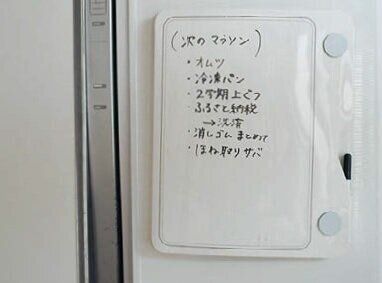 (次のマラソン)
・オムツ
・冷凍パン
・2学期上ぐつ
・ふるさと納税
→洗済
・消しゴムまとめて
・ほね取りサバ